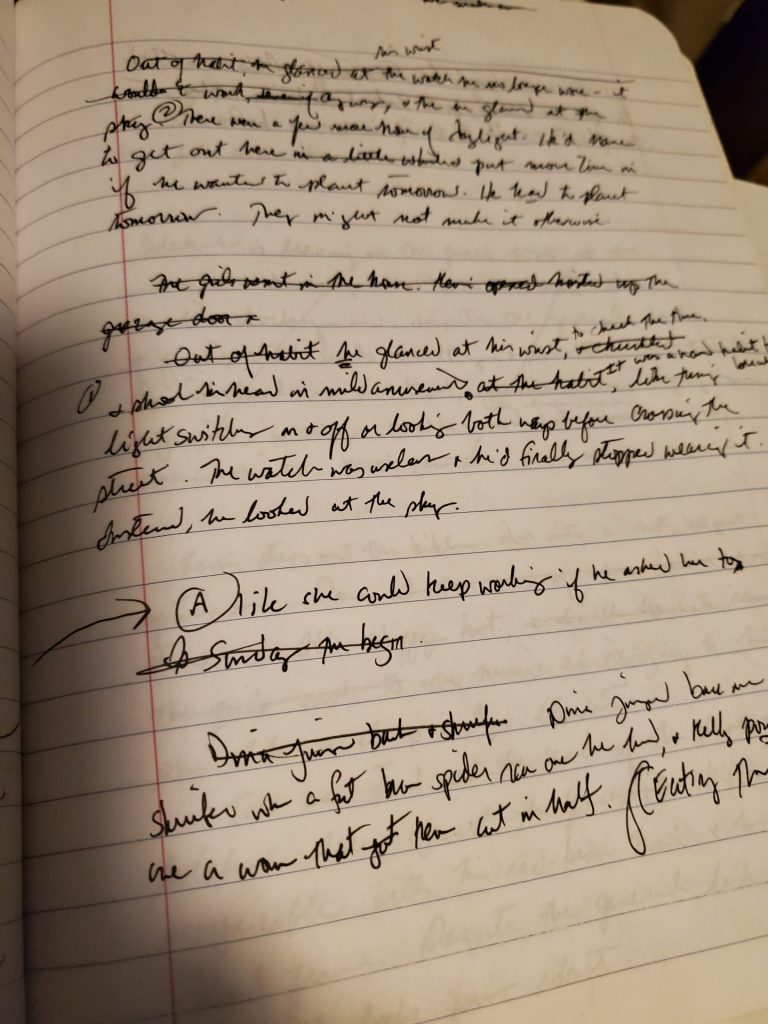 his wrist
Out of habit, he glanced at the watch he no longer wore - it
wouldn't work, anyway, & the he glanced at the
sky. ② There were a few more hours of daylight. He'd have
to get out here in a little while & put more time in
if he wanted to plant tomorrow. He had to plant
tomorrow. They might not make it otherwise.
The girls went in the house. opened hoisted up the
garage door
to check the time.
Out of habit he glanced at his wrist, & chuckled
① & shook his head in mild amusement. at the habit, It was a habit like turning
light switches on & off or looking both ways before crossing the
street. The watch was useless & he'd finally stopped wearing it.
Instead, he looked at the sky.
Ⓐ like she could keep working if he asked her to
Sunday the begin
Dina jumped back & Dina jumped back and
shrieked when a fat brown spider ran over her hand, & Kelly
over a worm that got hewn cut in half. (Eating